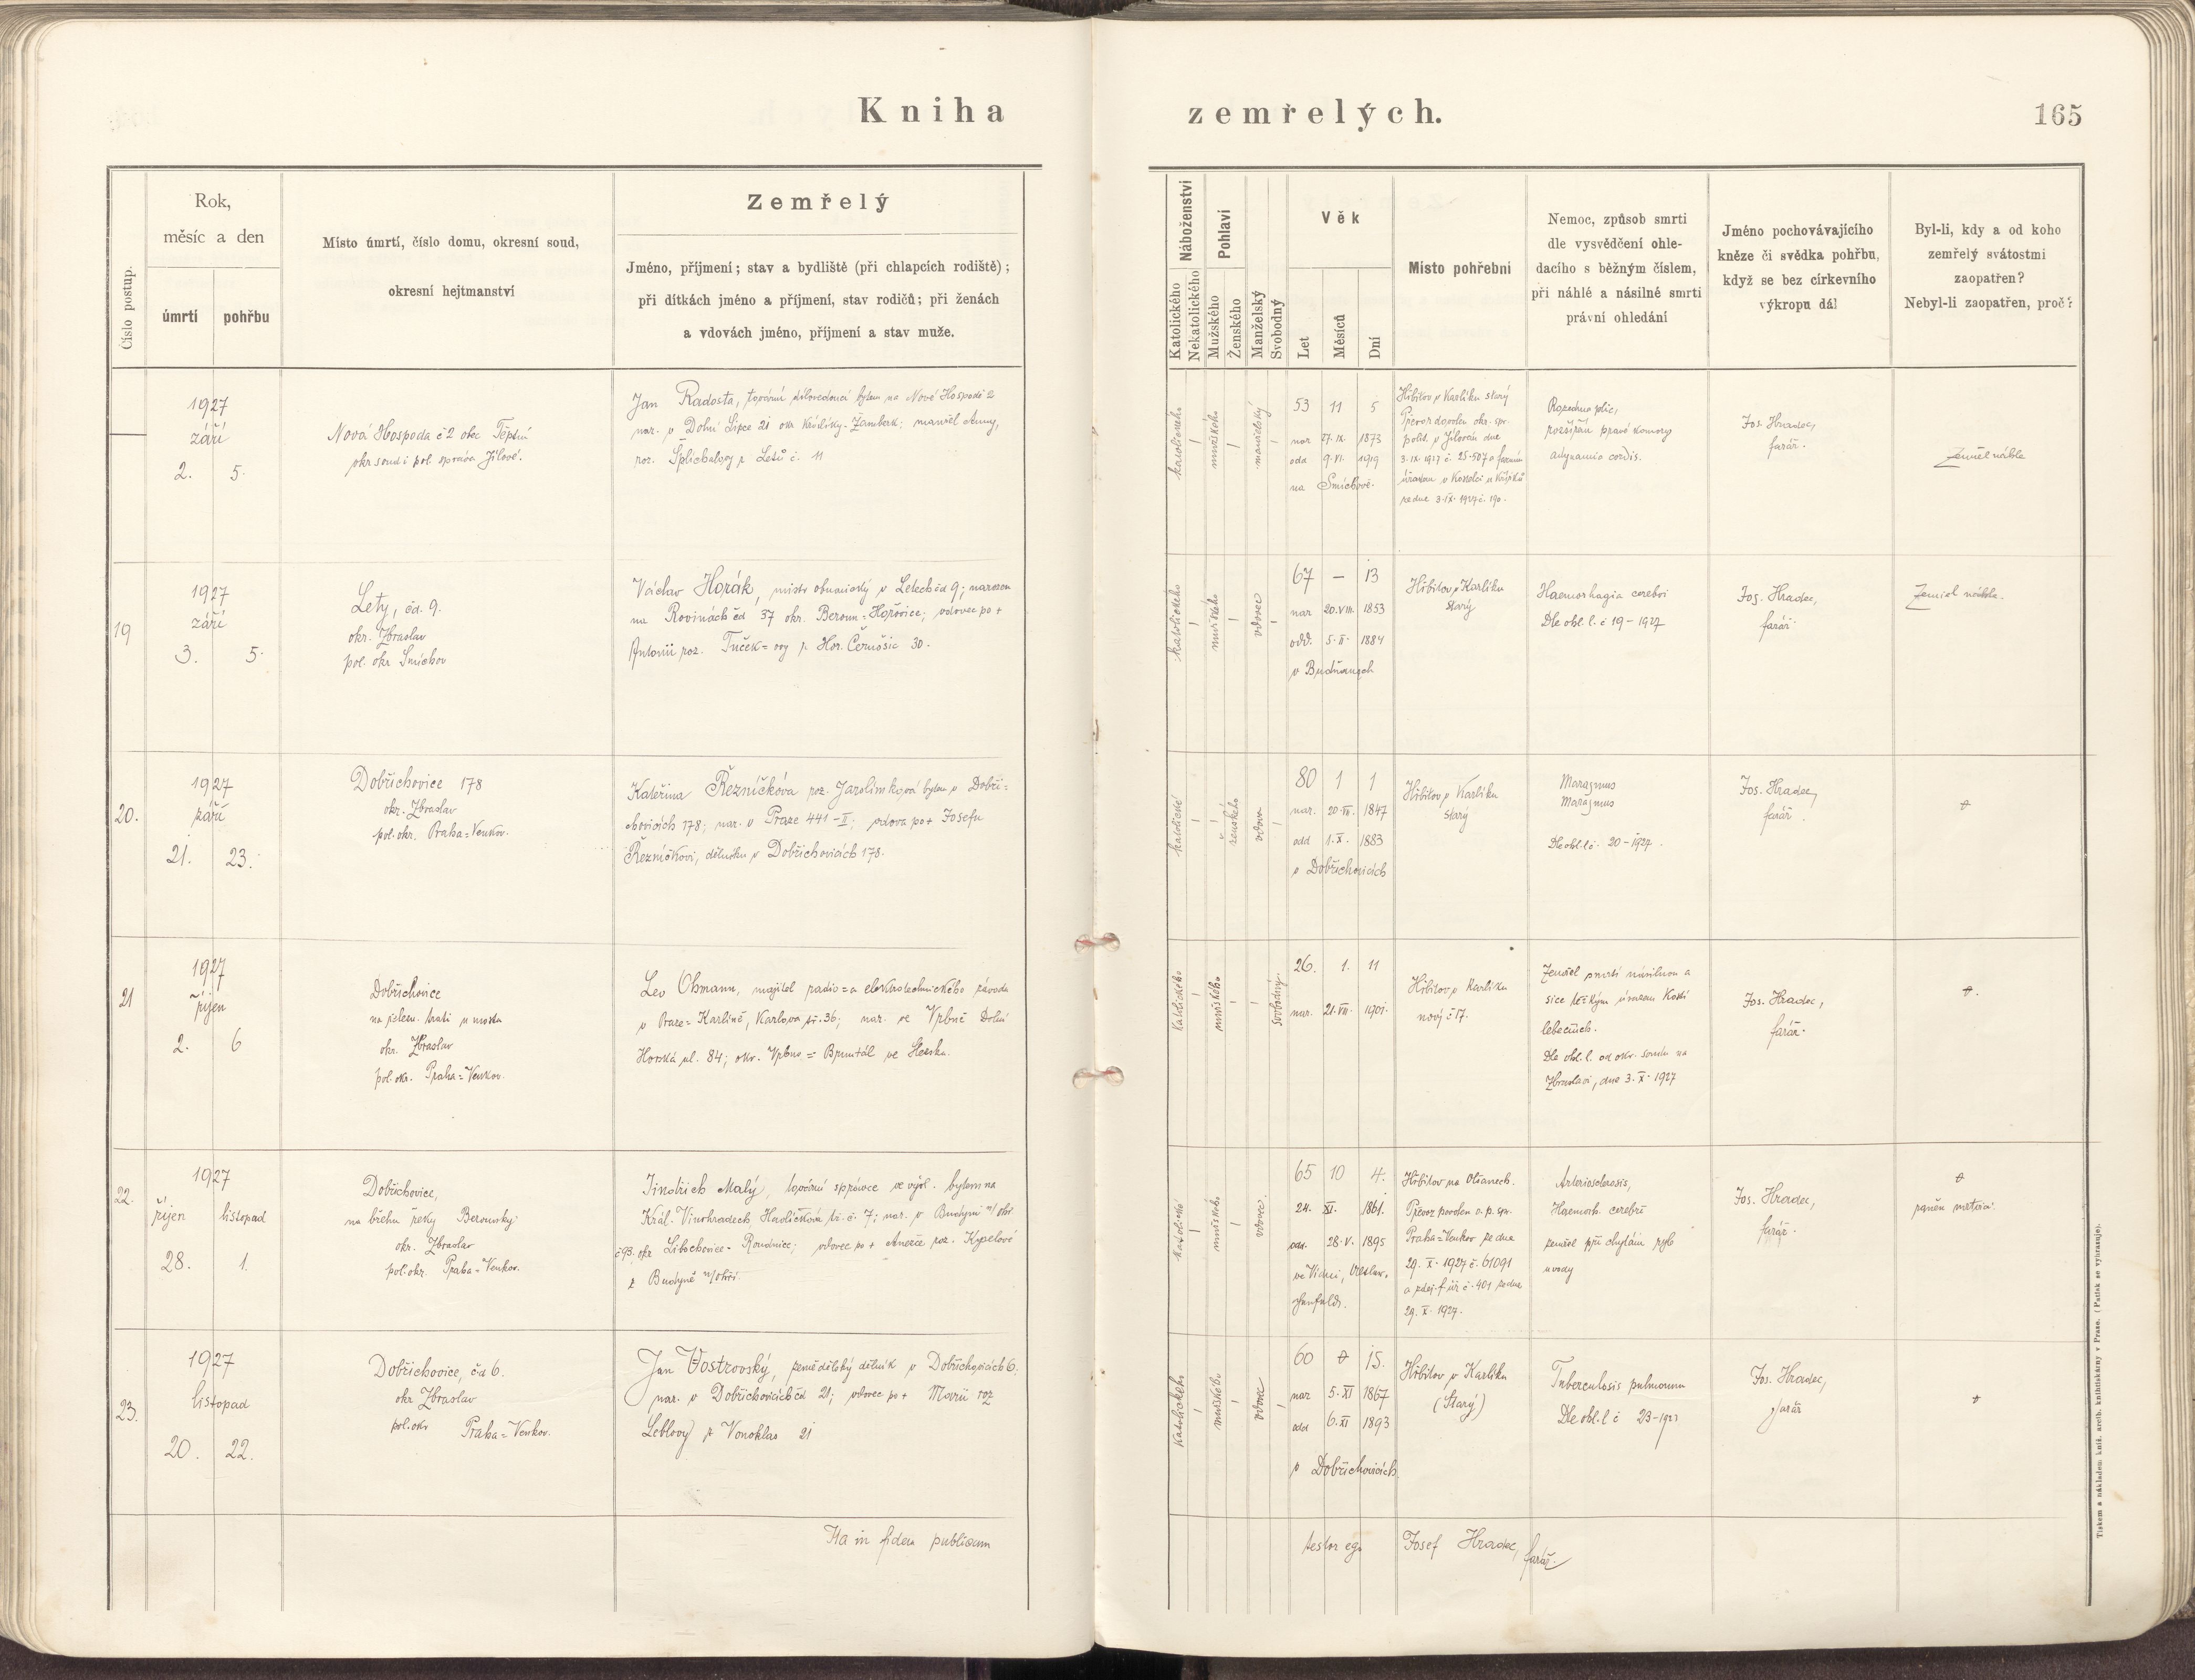 Kniha zemřelých.
165
Číslo postup.
Rok,
měsíc a den
úmrtí
pohřbu
Místo úmrtí, číslo domu, okresní soud,
okresní hejtmanství
Zemřelý
Jméno, příjmení; stav a bydliště (při chlapcích rodiště);
při dítkách jméno a příjmení, stav rodičů; při ženách
a vdovách jméno, příjmení a stav muže.
Náboženství
Katolického
Nekatolického
Pohlaví
Mužského
Ženského
Manželský
Svobodný
Věk
Let
Měsíců
Dní
Místo pohřební
Nemoc, způsob smrti
dle vysvědčení ohle-
dacího s běžným číslem,
při náhlé a násilné smrti
právní ohledání
Jméno pochovávajícího
kněze či svědka pohřbu,
když se bez církevního
výkropu dál
Byl-li, kdy a od koho
zemřelý svátostmi
zaopatřen?
Nebyl-li zaopatřen, proč?
1927
září
2. 5.
Nová Hospoda č 2 obec Těptín
okr soud i pol. správa Jílové.
Jan Radosta, tovární bytem na Nové Hospodě 2
nar. v Dolní Lipce 21 okr Králíky-Žamberk; manžel Anny,
roz. Šplíchalovy z Letů č. 11
katolického
mužského
manželský
53 11 5
nar 27. IX. 1873
odd 9. VI. 1919
na Smíchově.
Hřbitov v Karlíku starý
Převoz dovolen okr. spr.
polit. v Jílovém dne
3. IX. 1927 č. 25.507 a farním
úřadem v
ze dne 3. IX. 1927 č. 190.
Rozedma plic,
rozšíření pravé komory
adynamia cordis.
Jos. Hradec,
farář.
Zemřel náhle
19
1927
září
3. 5.
Lety, čd. 9.
okr. Zbraslav
pol. okr Smíchov
Václav Horák, mistr obuvnický v Letech čd 9; narozen
na Rovinách čd 37 okr. Beroun-Hořovice; vdovec po +
Antonii roz. Tuček-ovy z Hor. Černošic 30.
katolického
mužského
vdovec
67 — 13
nar 20. VIII. 1853
odd. 5. II. 1884
v Budňanech
Hřbitov v Karlíku
starý
Haemorhagia cerebri
Dle ohl. l. č 19-1927
Jos. Hradec,
farář.
Zemřel náhle.
20.
1927
září
21. 23.
Dobřichovice 178
okr. Zbraslav
pol. okr. Praha-Venkov.
Kateřina Řezníčková roz. Jarolímková bytem v Dobři-
chovicích 178; nar. v Praze 441-II; vdova po + Josefu
Řezníčkovi, dělníku v Dobřichovicích 178.
katolické
ženského
vdova
80 1 1
nar. 20. VII. 1847
odd 1. X. 1883
v Dobřichovicích
Hřbitov v Karlíku
starý
Marasmus
Marasmus
Dle ohl. l. č. 20-1927.
Jos. Hradec,
farář.
21
1927
říjen
2. 6
Dobřichovice
na železn. trati u mostu
okr. Zbraslav
pol. okr. Praha-Venkov.
Lev Ohmann, majitel radio- a elektrotechnického závodu
v Praze-Karlíně, Karlova tř. 36; nar. ve Vrbně Dolní
Horská ul. 84; okr. Vrbno-Bruntál ve Slezsku.
Katolického
mužského
svobodný.
26. 1. 11
nar. 21. VII. 1901.
Hřbitov v Karlíku
nový č 17.
Zemřel smrtí násilnou a
sice těžkým úrazem kostí
lebečních.
Dle ohl. l. od okr. soudu na
Zbraslavi, dne 3. X. 1927
Jos. Hradec,
farář.
22.
1927
říjen listopad
28. 1.
Dobřichovice,
na břehu řeky Berounky
okr. Zbraslav
pol. okr. Praha-Venkov.
Jindřich Malý, tovární správce ve výsl. bytem na
Král. Vinohradech, Havlíčkova tř. č. 7; nar. v Budyni n/Ohří
č 93. okr Libochovice-Roudnice; vdovec po + Anežce roz. Kypelové
z Budyně n/Ohří.
katolické
mužského
vdovec.
65 10 4.
24. XI. 1861.
odd. 28. V. 1895
ve Vídni,
Hřbitov na Olšanech.
Převoz povolen o. p. spr.
Praha-Venkov ze dne
29. X. 1927 č. 61091
a zdej. f. úř č. 401 ze dne
29. X. 1927.
Arteriosclerosis,
Haemorh. cerebri
zemřel při chytání ryb
u vody
Jos. Hradec,
farář.
23.
1927
listopad
20. 22.
Dobřichovice, čd 6.
okr Zbraslav
pol. okr Praha-Venkov.
Jan Vostrovský, zemědělský dělník v Dobřichovicích 6.
nar. v Dobřichovicích čd 21; vdovec po + Marii roz
Leblovy z Vonoklas 21
Katolického
mužského
vdovec
60 15.
nar 5. XI 1867
odd 6. XI 1893
v Dobřichovicích.
Hřbitov v Karlíku
(Starý)
Tuberculosis pulmonum
Dle ohl. l č 23-1927
Jos. Hradec,
farář
Ita in fidem publicam
testor ego Josef Hradec, farář.